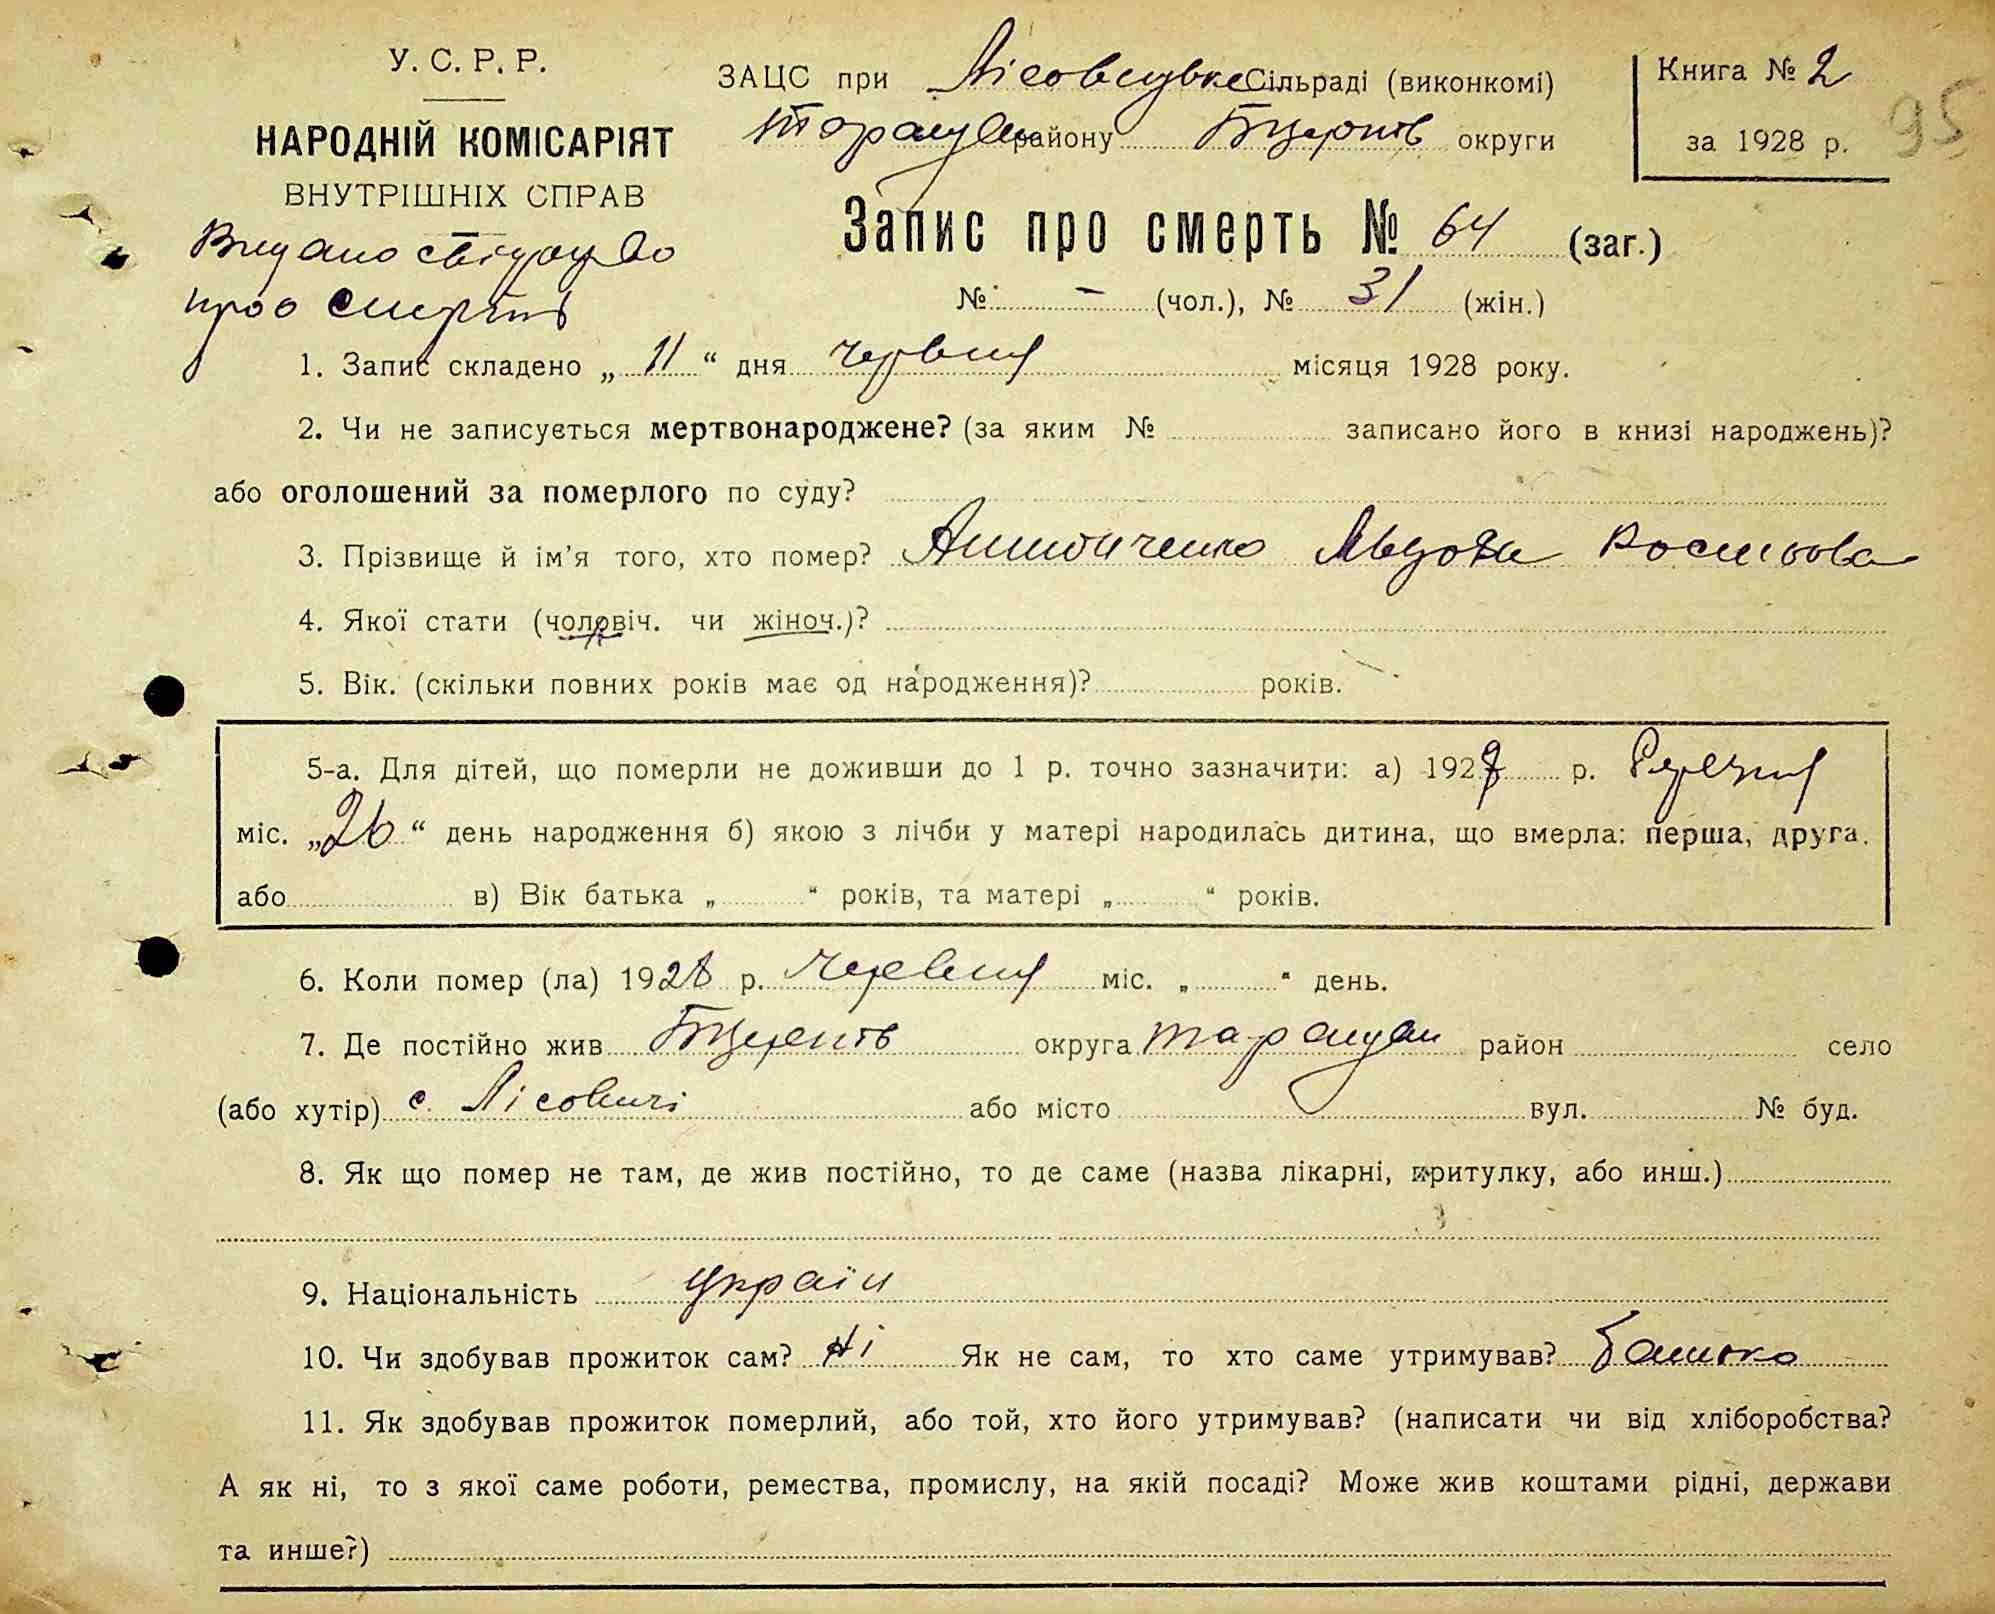 У. С. Р. Р.
НАРОДНІЙ КОМІСАРІЯТ
ВНУТРІШНІХ СПРАВ
Видано свідоцтво
проо смерть
ЗАЦС при Лісовицьке Сільраді (виконкомі)
Таращан району Бцерків округи
Книга № 2
за 1928 р.
95
Запис про смерть № 64 (заг.)
№ - (чол.), № 31 (жін.)
1. Запис складено „ 11 “ дня червня місяця 1928 року.
2. Чи не записується мертвонароджене? (за яким № записано його в книзі народжень)?
або оголошений за померлого по суду?
3. Прізвище й ім'я того, хто помер?
4. Якої стати (чоловіч. чи жіноч.)?
5. Вік. (скільки повних років має од народження)? років.
5-а. Для дітей, що померли не доживши до 1 р. точно зазначити: а) 1928 р. Березня
міс. „ 26 “ день народження б) якою з лічби у матері народилась дитина, що вмерла: перша, друга.
або в) Вік батька „ “ років, та матері „ “ років.
6. Коли помер (ла) 1928 р. Червня міс. „ “ день.
7. Де постійно жив Бцерків округа Таращан район село
(або хутір) с. Лісовичі або місто вул. № буд.
8. Як що помер не там, де жив постійно, то де саме (назва лікарні, притулку, або инш.)
9. Національність україн
10. Чи здобував прожиток сам? Ні Як не сам, то хто саме утримував? батько
11. Як здобував прожиток померлий, або той, хто його утримував? (написати чи від хліборобства?
А як ні, то з якої саме роботи, ремества, промислу, на якій посаді? Може жив коштами рідні, держави
та инше?)